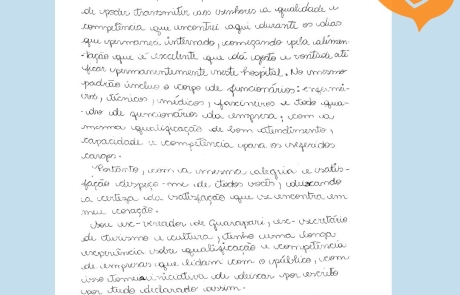 de poder transmitir aos senhores a qualidade e
competência que encontrei aqui durante os dias
que permaneci internado, começando pela alimen-
tação que é excelente que dá gosto e vontade até
ficar permanentemente neste hospital. No mesmo
padrão incluo o corpo de funcionários: enfermei-
ros, técnicos, médicos, faxineiros e todo qua-
dro de funcionários da empresa, com a
mesma qualificação de bom atendimento,
capacidade e competência para os referidos
cargos.
Portanto, com a mesma alegria e satis-
fação despeço-me de todos vocês, deixando
a certeza da satisfação que se encontra em
meu coração.
Sou ex-vereador de Guarapari, ex-secretário
de turismo e cultura, tenho uma longa
experiência sobre qualificação e competência
de empresas que lidam com o público, com
isso tomei a iniciativa de deixar por escrito
por tudo declarado assim.